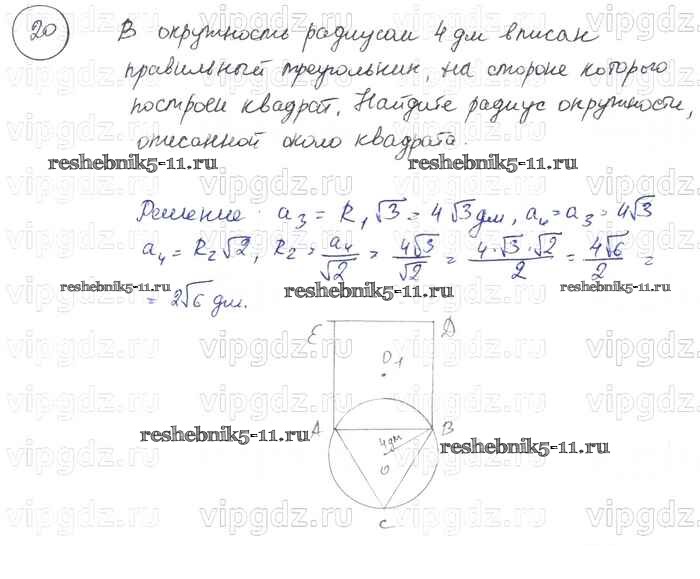 20 В окружность радиусом 4 дм вписан
правильный треугольник, на стороне которого
построен квадрат. Найдите радиус окружности,
описанной около квадрата.
reshebnik5-11.ru reshebnik5-11.ru
Решение: a₃ = R₁√3 = 4√3 дм, a₄ = a₃ = 4√3
a₄ = R₂√2, R₂ = a₄/√2 = 4√3/√2 = 4·√3·√2/2 = 4√6/2 =
= 2√6 дм.
reshebnik5-11.ru reshebnik5-11.ru reshebnik5-11.ru
E D
O₁
A B
4 дм
O
C
reshebnik5-11.ru reshebnik5-11.ru
vipgdz.ru vipgdz.ru vipgdz.ru vipgdz.ru